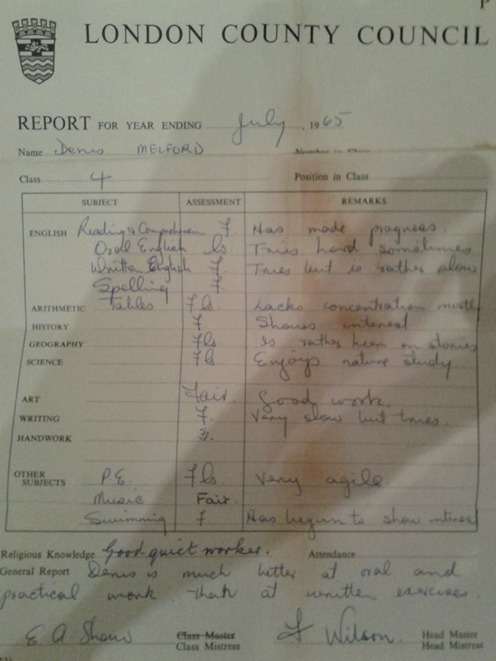 P
LONDON COUNTY COUNCIL
REPORT FOR YEAR ENDING July 1965
Name Denis MELFORD Number in Class
Class 4 Position in Class
SUBJECT ASSESSMENT REMARKS
ENGLISH Reading & Comprehension F. Has made progress.
Oral English ls Tries hard sometimes
Written English F. Tries but is rather slow
Spelling F.
ARITHMETIC Tables Fls Lacks concentration
HISTORY F Shows interest
GEOGRAPHY Fls Is rather keen on stories
SCIENCE Fls Enjoys nature study.
ART Fair. Good work.
WRITING F. Very slow but tries.
HANDWORK F.
OTHER SUBJECTS P.E. Fls Very agile
Music Fair
Swimming F Has begun to show interest
Religious Knowledge Good quiet worker. Attendance
General Report Denis is much better at oral and
practical work than at written exercises.
E A Shaw Class Master F Wilson. Head Master
Class Mistress Head Mistress